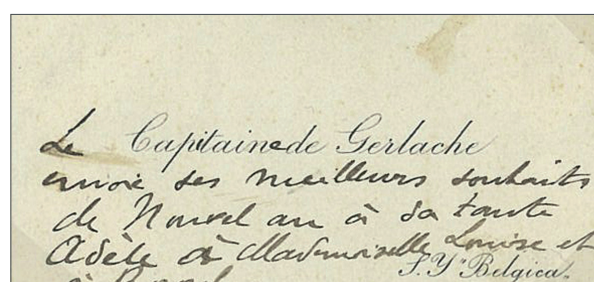 Le Capitaine de Gerlache
envoie ses meilleurs souhaits
de Nouvel an à sa tante
Adèle à Mademoiselle Louise et
S.Y "Belgica"
à